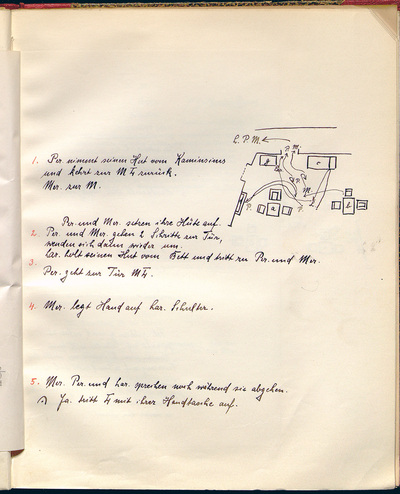 L.P.M.
1. Per. nimmt seinen Hut vom Kaminsims
und kehrt zur M zurück.
Mer. zur M.
Per. und Mer. setzen ihre Hüte auf.
2. Per. und Mer. gehen 2 Schritte zur Tür,
wenden sich dann wieder um.
3. Har. holt seinen Hut vom Bett und tritt zu Per. und Mer.
Per. geht zur Tür M
4. Mer. legt Hand auf Har. Schulter.
5. Mer. Per. und Har. sprechen noch während sie abgehen.
Ja. tritt mit ihrer Handtasche auf.